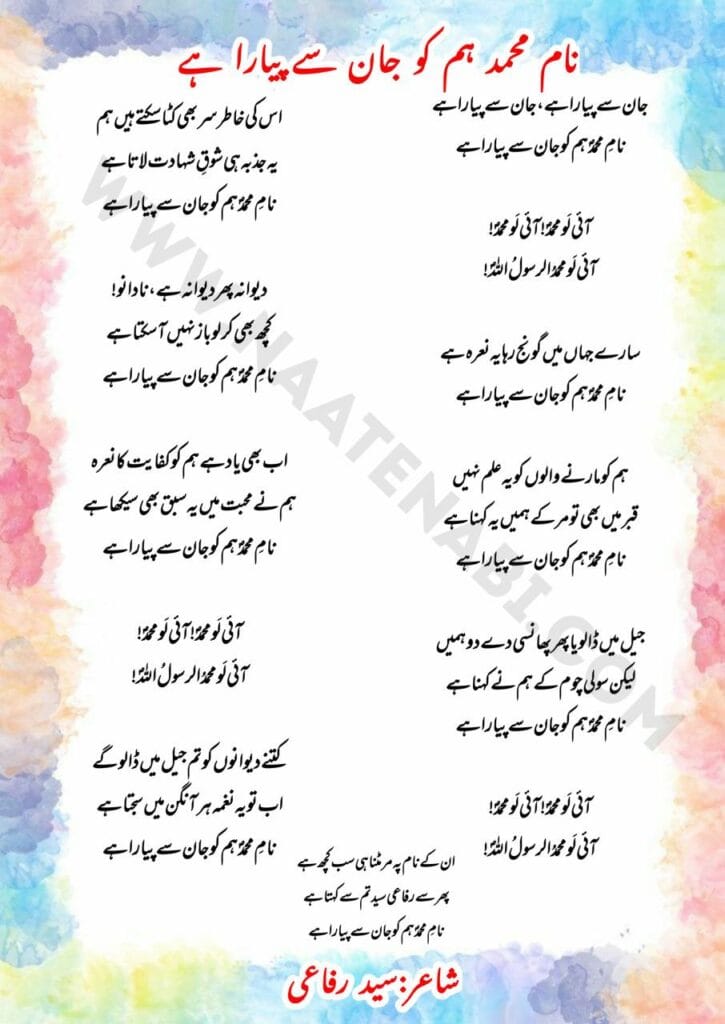 نام محمد ہم کو جان سے پیارا ہے
جان سے پیارا ہے، جان سے پیارا ہے
نامِ محمدؐ ہم کو جان سے پیارا ہے
آئی لَو محمدؐ! آئی لَو محمدؐ!
آئی لَو محمدُ الرسولُ اللہؐ!
سارے جہاں میں گونج رہا یہ نعرہ ہے
نامِ محمدؐ ہم کو جان سے پیارا ہے
ہم کو مارنے والوں کو یہ علم نہیں
قبر میں بھی تو مر کے ہمیں یہ کہنا ہے
نامِ محمدؐ ہم کو جان سے پیارا ہے
جیل میں ڈالو یا پھر پھانسی دے دو ہمیں
لیکن سولی چوم کے ہم نے کہنا ہے
نامِ محمدؐ ہم کو جان سے پیارا ہے
آئی لَو محمدؐ! آئی لَو محمدؐ!
آئی لَو محمدُ الرسولُ اللہؐ!
اس کی خاطر سر بھی کٹا سکتے ہیں ہم
یہ جذبہ ہی شوقِ شہادت لاتا ہے
نامِ محمدؐ ہم کو جان سے پیارا ہے
دیوانہ پھر دیوانہ ہے، نادانو!
کچھ بھی کر لو باز نہیں آ سکتا ہے
نامِ محمدؐ ہم کو جان سے پیارا ہے
اب بھی یاد ہے ہم کو کفایت کا نعرہ
ہم نے محبت میں یہ سبق بھی سیکھا ہے
نامِ محمدؐ ہم کو جان سے پیارا ہے
آئی لَو محمدؐ! آئی لَو محمدؐ!
آئی لَو محمدُ الرسولُ اللہؐ!
کتنے دیوانوں کو تم جیل میں ڈالو گے
اب تو یہ نغمہ ہر آنگن میں سجتا ہے
نامِ محمدؐ ہم کو جان سے پیارا ہے
ان کے نام پہ مر مٹنا ہی سب کچھ ہے
پھر سے رفاعی سید تم سے کہتا ہے
نامِ محمدؐ ہم کو جان سے پیارا ہے
شاعر: سید رفاعی
WWW.NAATENABI.COM